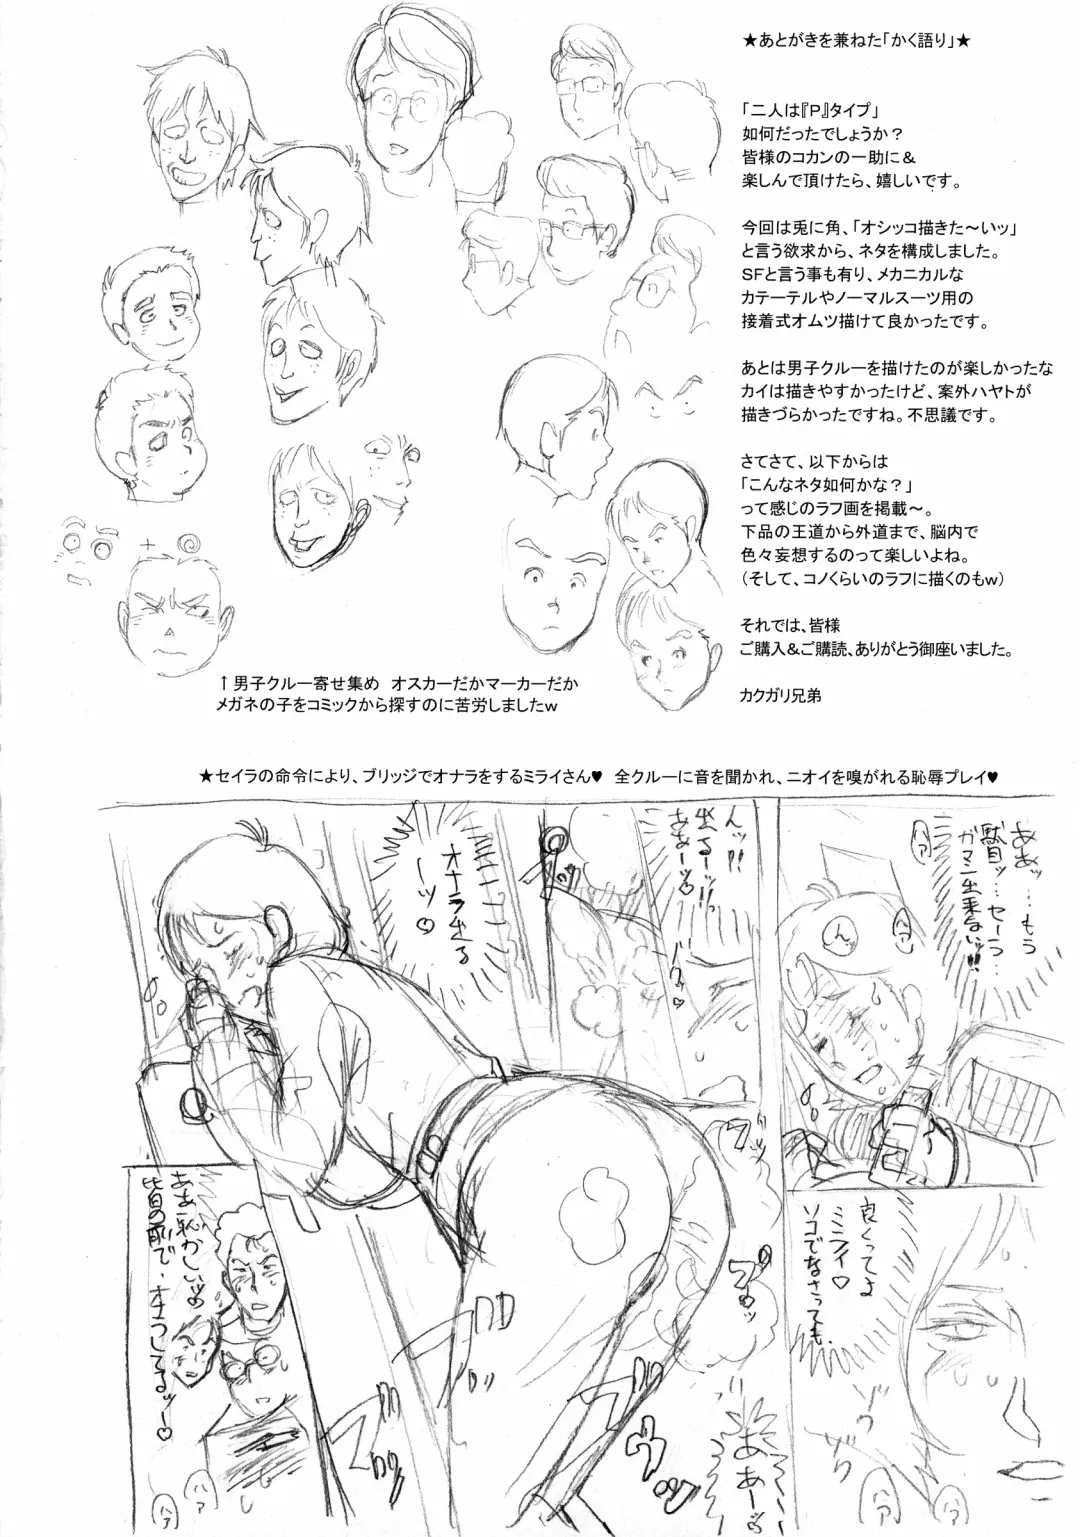 ★あとがきを兼ねた「かく語り」★
「二人は『P』タイプ」
如何だったでしょうか？
皆様のコカンの一助に＆
楽しんで頂けたら、嬉しいです。
今回は兎に角、「オシッコ描きた～いッ」
と言う欲求から、ネタを構成しました。
SFと言う事も有り、メカニカルな
カテーテルやノーマルスーツ用の
接着式オムツ描けて良かったです。
あとは男子クルーを描けたのが楽しかったな
カイは描きやすかったけど、案外ハヤトが
描きづらかったですね。不思議です。
さてさて、以下からは
「こんなネタ如何かな？」
って感じのラフ画を掲載～。
下品の王道から外道まで、脳内で
色々妄想するのって楽しいよね。
（そして、コノくらいのラフに描くのもw）
それでは、皆様
ご購入＆ご購読、ありがとう御座いました。
カクガリ兄弟
↑男子クルー寄せ集め　オスカーだかマーカーだか
メガネの子をコミックから探すのに苦労しましたw
★セイラの命令により、ブリッジでオナラをするミライさん♥　全クルーに音を聞かれ、ニオイを嗅がれる恥辱プレイ♥
ああッ…もう
駄目ッ…セーラ…
ガマン出来ないッ!!
ハァ
ハァ
んッ
んッ!!
出るーッ!!
ああーッ♡
オナラ出る
ーッ♡
良くってよ
ミライ♡
ソコでなさっても
ゾク
ゾク
ハァ
ハァ
ああ恥かしいッ
皆の前で、
ああーッ
ハァ
ハァ